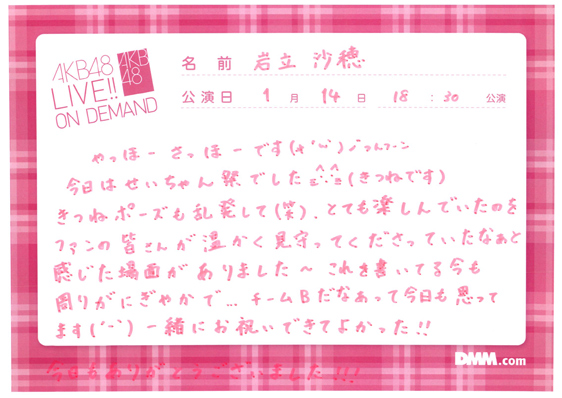 AKB48
LIVE!!
ON DEMAND
AKB
48
名前 岩立 沙穂
公演日 1月 14日 18:30 公演
やっほー さっほーです
今日は せいちゃん祭でした (きつねです)
きつねポーズも乱発して(笑)、とても楽しんでいたのを
ファンの皆さんが温かく見守ってくださっていたなぁと
感じた場面がありました〜 これを書いてる今も
周りがにぎやかで... チームBだなあって今日も思って
ます(´˘`) 一緒にお祝いできてよかった!!
今日もありがとうございました!!!
DMM.com